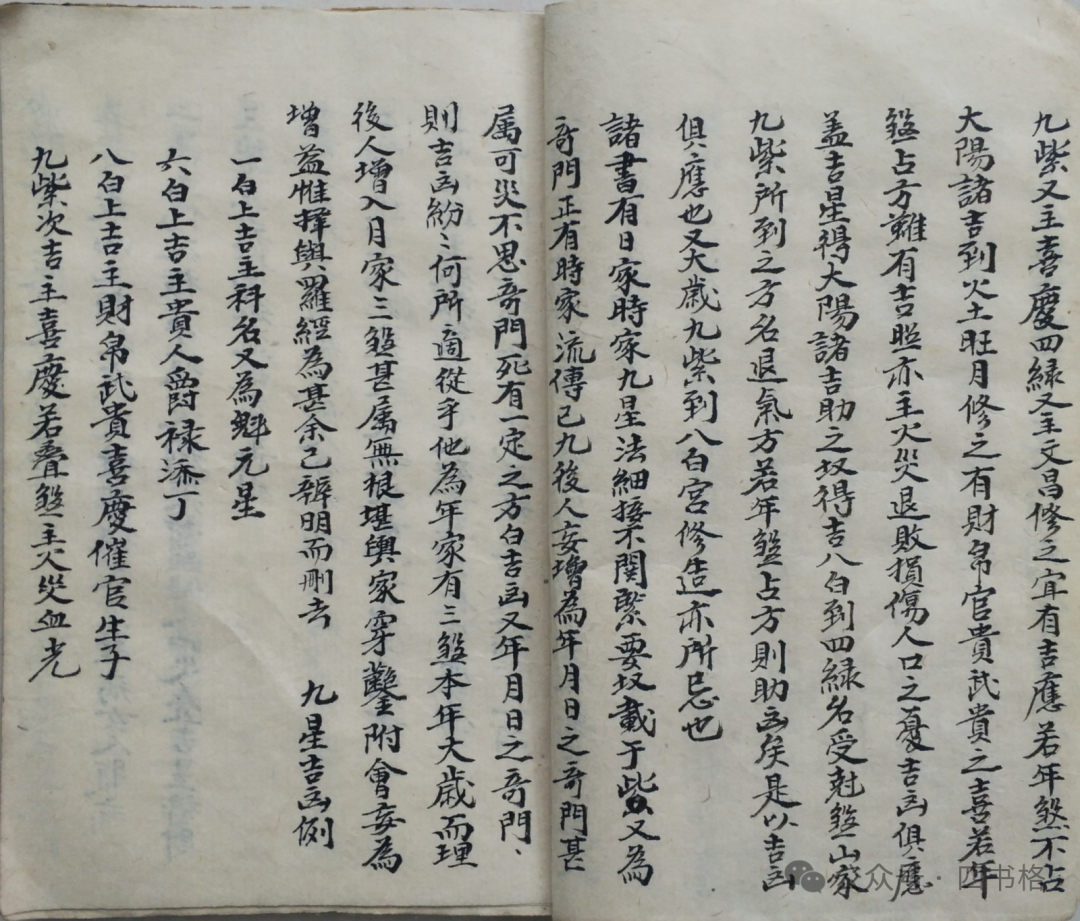 九紫又主喜慶四緑又主文昌修之宜有吉應若年煞不占
大陽諸吉到火土旺月修之有財帛官貴武貴之喜若年
煞占方難有吉照亦主火災退敗損傷人口之憂吉凶俱應
盖吉星得大陽諸吉助之故得吉八白到四緑名受尅煞山家
九紫所到之方名退氣方若年煞占方則助凶矣是以吉凶
俱應也又大歲九紫到八白宮修造亦所忌也
諸書有日家時家九星法細揆不関緊要故載于此又為
奇門正有時家流傳已九後人妄增為年月日之奇門甚
属可笑不思奇門死有一定之方白吉凶又年月日之奇門、
則吉凶紛〻何所適從乎他為年家有三煞本年大歲而理
後人增入月家三煞甚属無根堪輿家穿鑿附會妄為
增益惟擇與羅經為甚余已辨明而刪去　九星吉凶例
一白上吉主科名又為魁元星
六白上吉主貴人爵禄添丁
八白上吉主財帛武貴喜慶催官生子
九紫次吉主喜慶若叠煞主火災血光
公众号・四书格